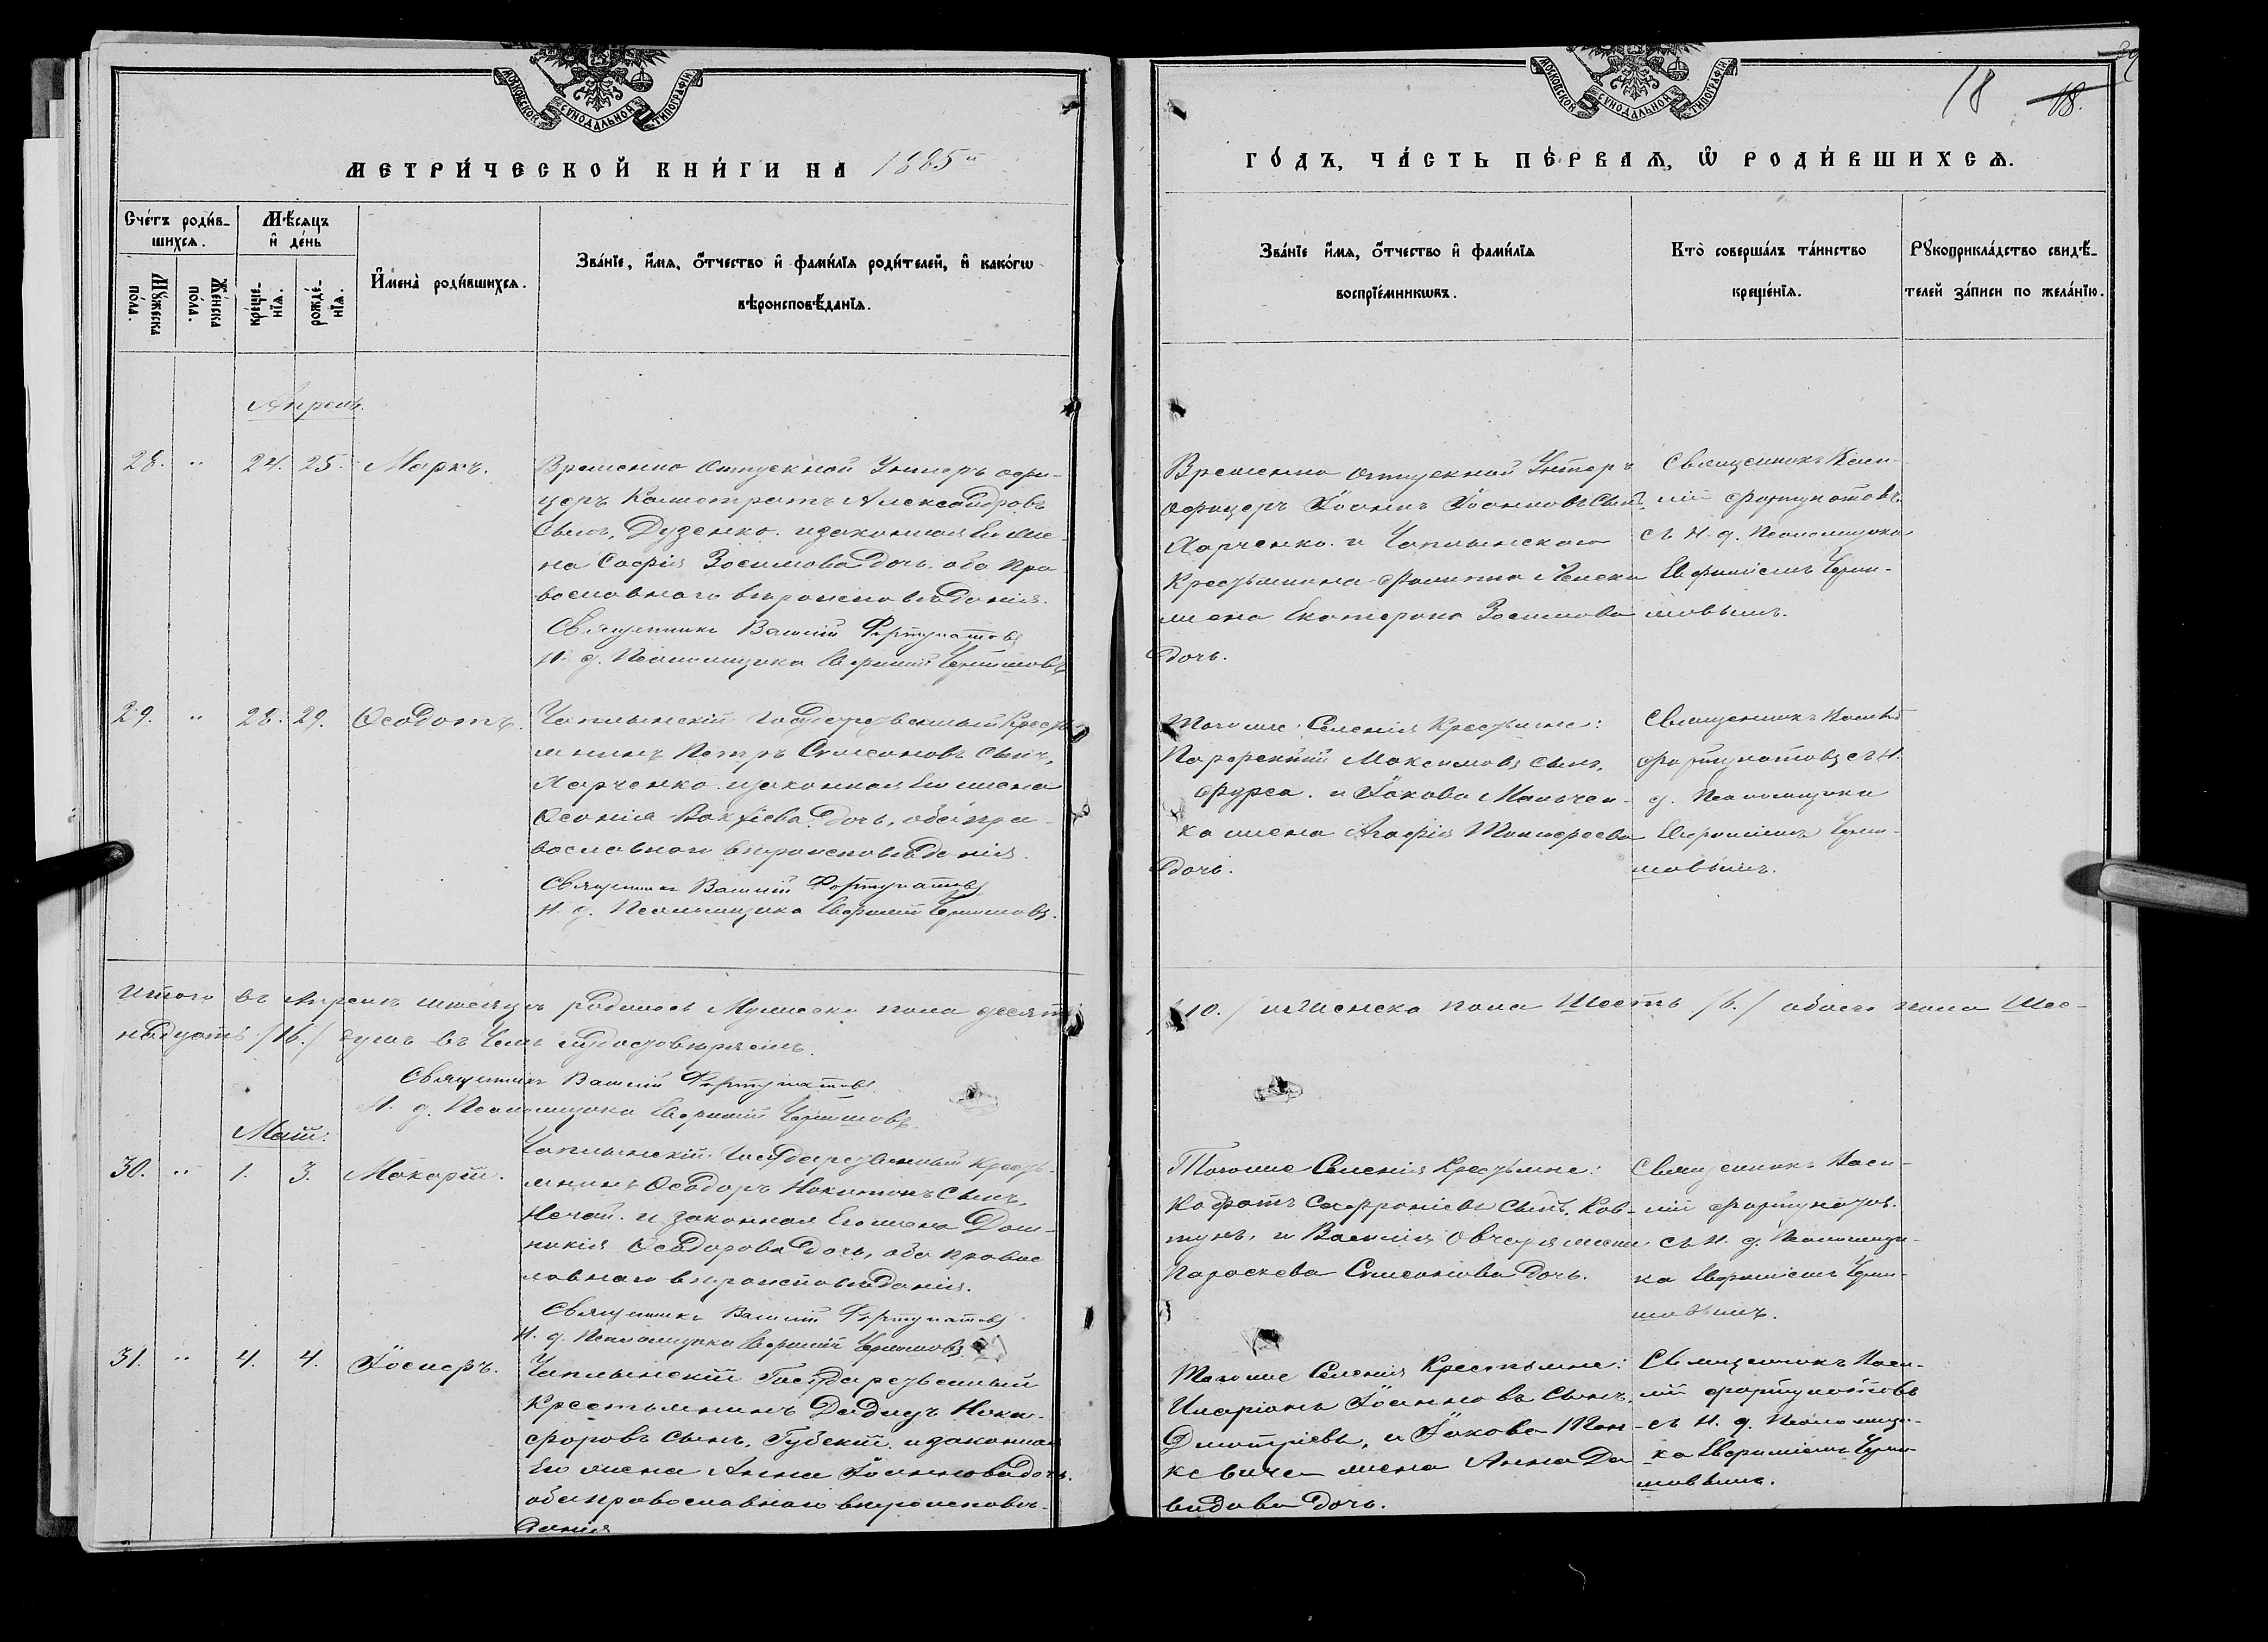 МОСКОВСКОЙ СѴНОДАЛЬНОЙ ТИПОГРАФІИ
МЕТРИ́ЧЕСКОЙ КНИ́ГИ НА 1885й
Сче́тъ роди́в-
шихсѧ.
Мѣ́сѧцъ
и҆ де́нь
Мꙋ́жеска
по́ла.
Же́нска
по́ла.
креще́-
нїѧ.
рожде́-
нїѧ.
И҆мена̀ роди́вшихсѧ.
Зва́нїе, и҆́мѧ, ѻ҆́тчество и҆ фами́лїѧ роди́телей, и҆ како́гѡ
вѣроисповѣ́данїѧ.
Апрель.
28. " 24. 25. Маркъ.
Временно Отпускной Унтеръ офи-
церъ Калистратъ Александровъ
Сынъ, Дузенко. и законная Его же-
на Софія Зосимова дочь. оба Пра-
вославнаго вѣроисповѣданія.
Священникъ Василій Фортунатовъ
И. д. Псаломщика Евфимій
29. " 28. 29. Ѳеодотъ.
Чаплынскій Государственный Кресть-
янинъ Петръ Симеоновъ Сынъ,
Харченко. и законная Его жена
Ѳеонія дочь, оба пра-
вославнаго вѣроисповѣданія.
Священникъ Василій Фортунатовъ
И. д. Псаломщика Евфимій
Итого въ Апрелѣ мѣсяцѣ родилось Мужеска пола десять
надцать /16./ душъ въ чемъ и удостовѣряемъ.
Священникъ Василій Фортунатовъ
И. д. Псаломщика Евфимій
Май:
30. " 1. 3. Макарій.
Чаплынскій Государственный Кресть-
янинъ Ѳеодоръ Сынъ,
Нечай. и законная Его жена Дом-
никія Ѳеодорова дочь, оба правос-
лавнаго вѣроисповѣданія.
Священникъ Василій Фортунатовъ
И. д. Псаломщика Евфимій
31. " 4. 4. Іосифъ.
Чаплынскій Государственный
Крестьянинъ Давидъ Ники-
форовъ Сынъ, Губскій. и законная
Его жена Анна Іоаннова дочь.
оба православнаго вѣроисповѣ-
данія
МОСКОВСКОЙ СѴНОДАЛЬНОЙ ТИПОГРАФІИ
18 18.
ГО́ДЪ, ЧА́СТЬ ПЕ́РВАѦ, Ѡ҆ РОДИ́ВШИХСѦ.
Зва́нїе и҆́мѧ, ѻ҆́тчество и҆ фами́лїѧ
воспрїе́мникѡвъ.
Кто̀ соверша́лъ та́инство
креще́нїѧ.
Рꙋкоприкла́дство свидѣ́-
телей за́писи по жела́нїю.
Временно отпускной Унтеръ
офицеръ Іоаннъ Іоанновъ Сынъ,
Харченко. и Чаплынскаго
Крестьянина Филиппа
жена Екатерина Зосимова
дочь.
Священникъ Васи-
лій Фортунатовъ
съ И. д. Псаломщика
Евфиміемъ
Тогоже Селенія Крестьяне:
Порфирій Максимовъ Сынъ,
Фурса. и Іакова Мальчен-
ка жена Агафія Тимофеева
дочь.
Священникъ Василій
Фортунатовъ съ И.
д. Псаломщика
Евфиміемъ
/10./ и Женска пола Шесть /6./ обоего пола Шес-
Тогоже Селенія Крестьяне:
Софроніевъ Сынъ, Ков-
тунъ, и Василія Овчара жена
Параскева Симеонова дочь.
Священникъ Васи-
лій Фортунатовъ
съ И. д. Псаломщи-
ка Евфиміемъ
Тогоже Селенія Крестьяне:
Иларіонъ Іоанновъ Сынъ,
Дмитріевъ, и Іакова
жена Анна Да-
видова дочь.
Священникъ Васи-
лій Фортунатовъ
съ И. д. Псаломщи-
ка Евфиміемъ